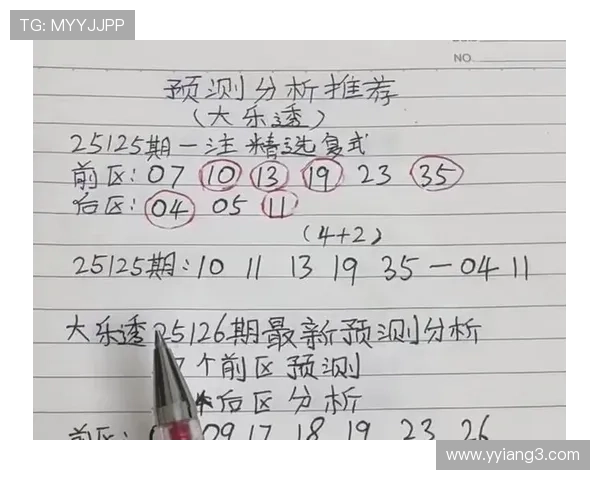 TG: MYYJJPP
NO.
预测分析推荐
（大乐透）
25125期一注精选复式
前区:07 10 13 19 23 35
后区:04 05 11
（4+2）
25125期:10 11 13 19 35—04 11
大乐透25126期最新预测分析
个前区预测
后区分析
前区: 09 17 18 19 23 26
www.yyiang3.com